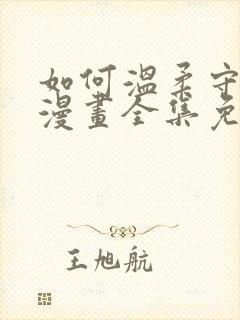 如何溫柔守
漫畫全集免
王旭航